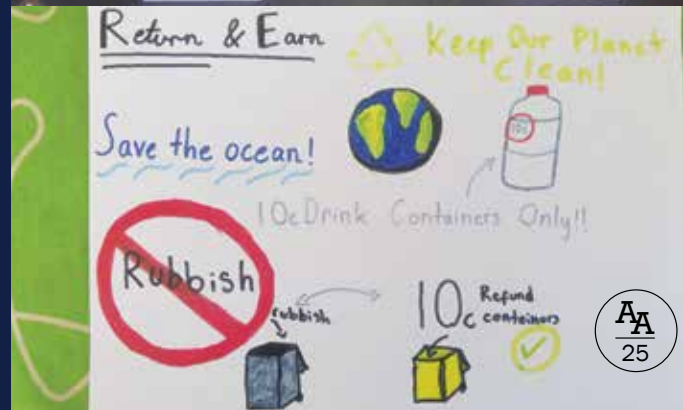 Return & Earn
Keep Our Planet
Clean!
Save the ocean!
10c
10c Drink Containers Only!!
Rubbish
rubbish
10c Refund
containers
AA
25